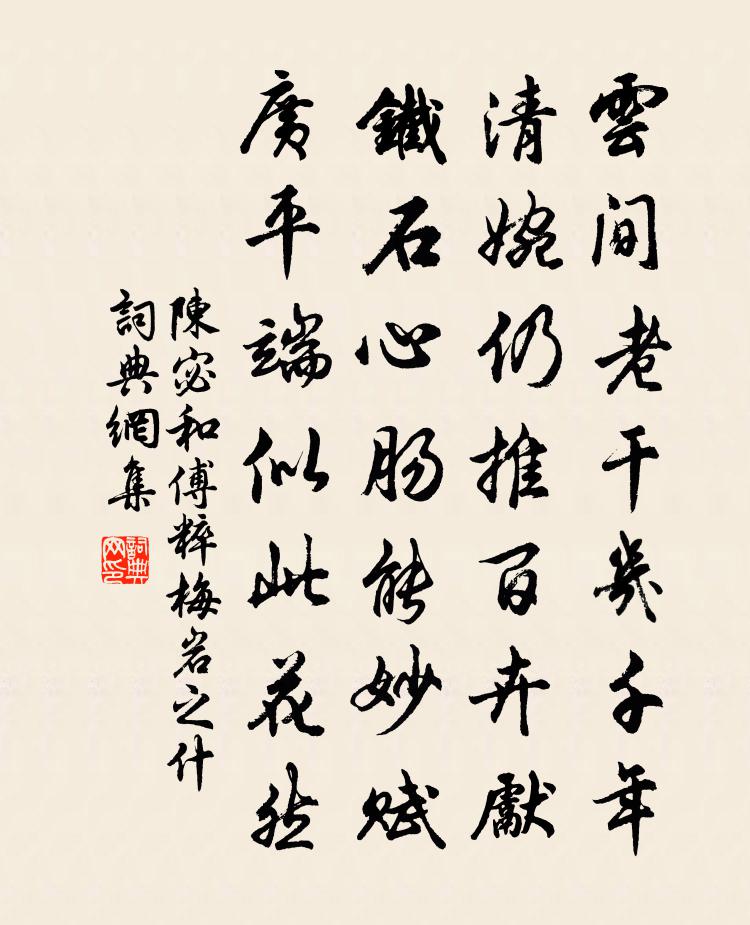 雲間老干幾千年
清婉仍推百卉獻
鐵石心腸能妙賦
廣平端似此花然
陳宓和傅粹梅岩之什
詞典網集
詞典网印